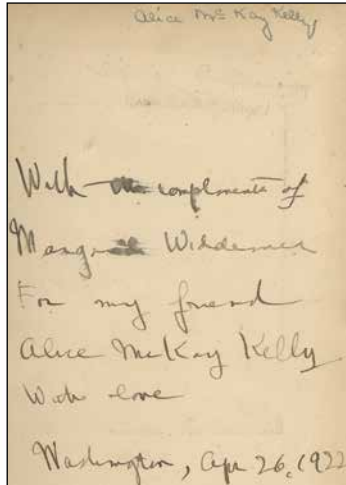 Alice McKay Kelly
With the compliments of
Wilderness
For my friend
Alice McKay Kelly
With love
Washington, Apr 26, 1922